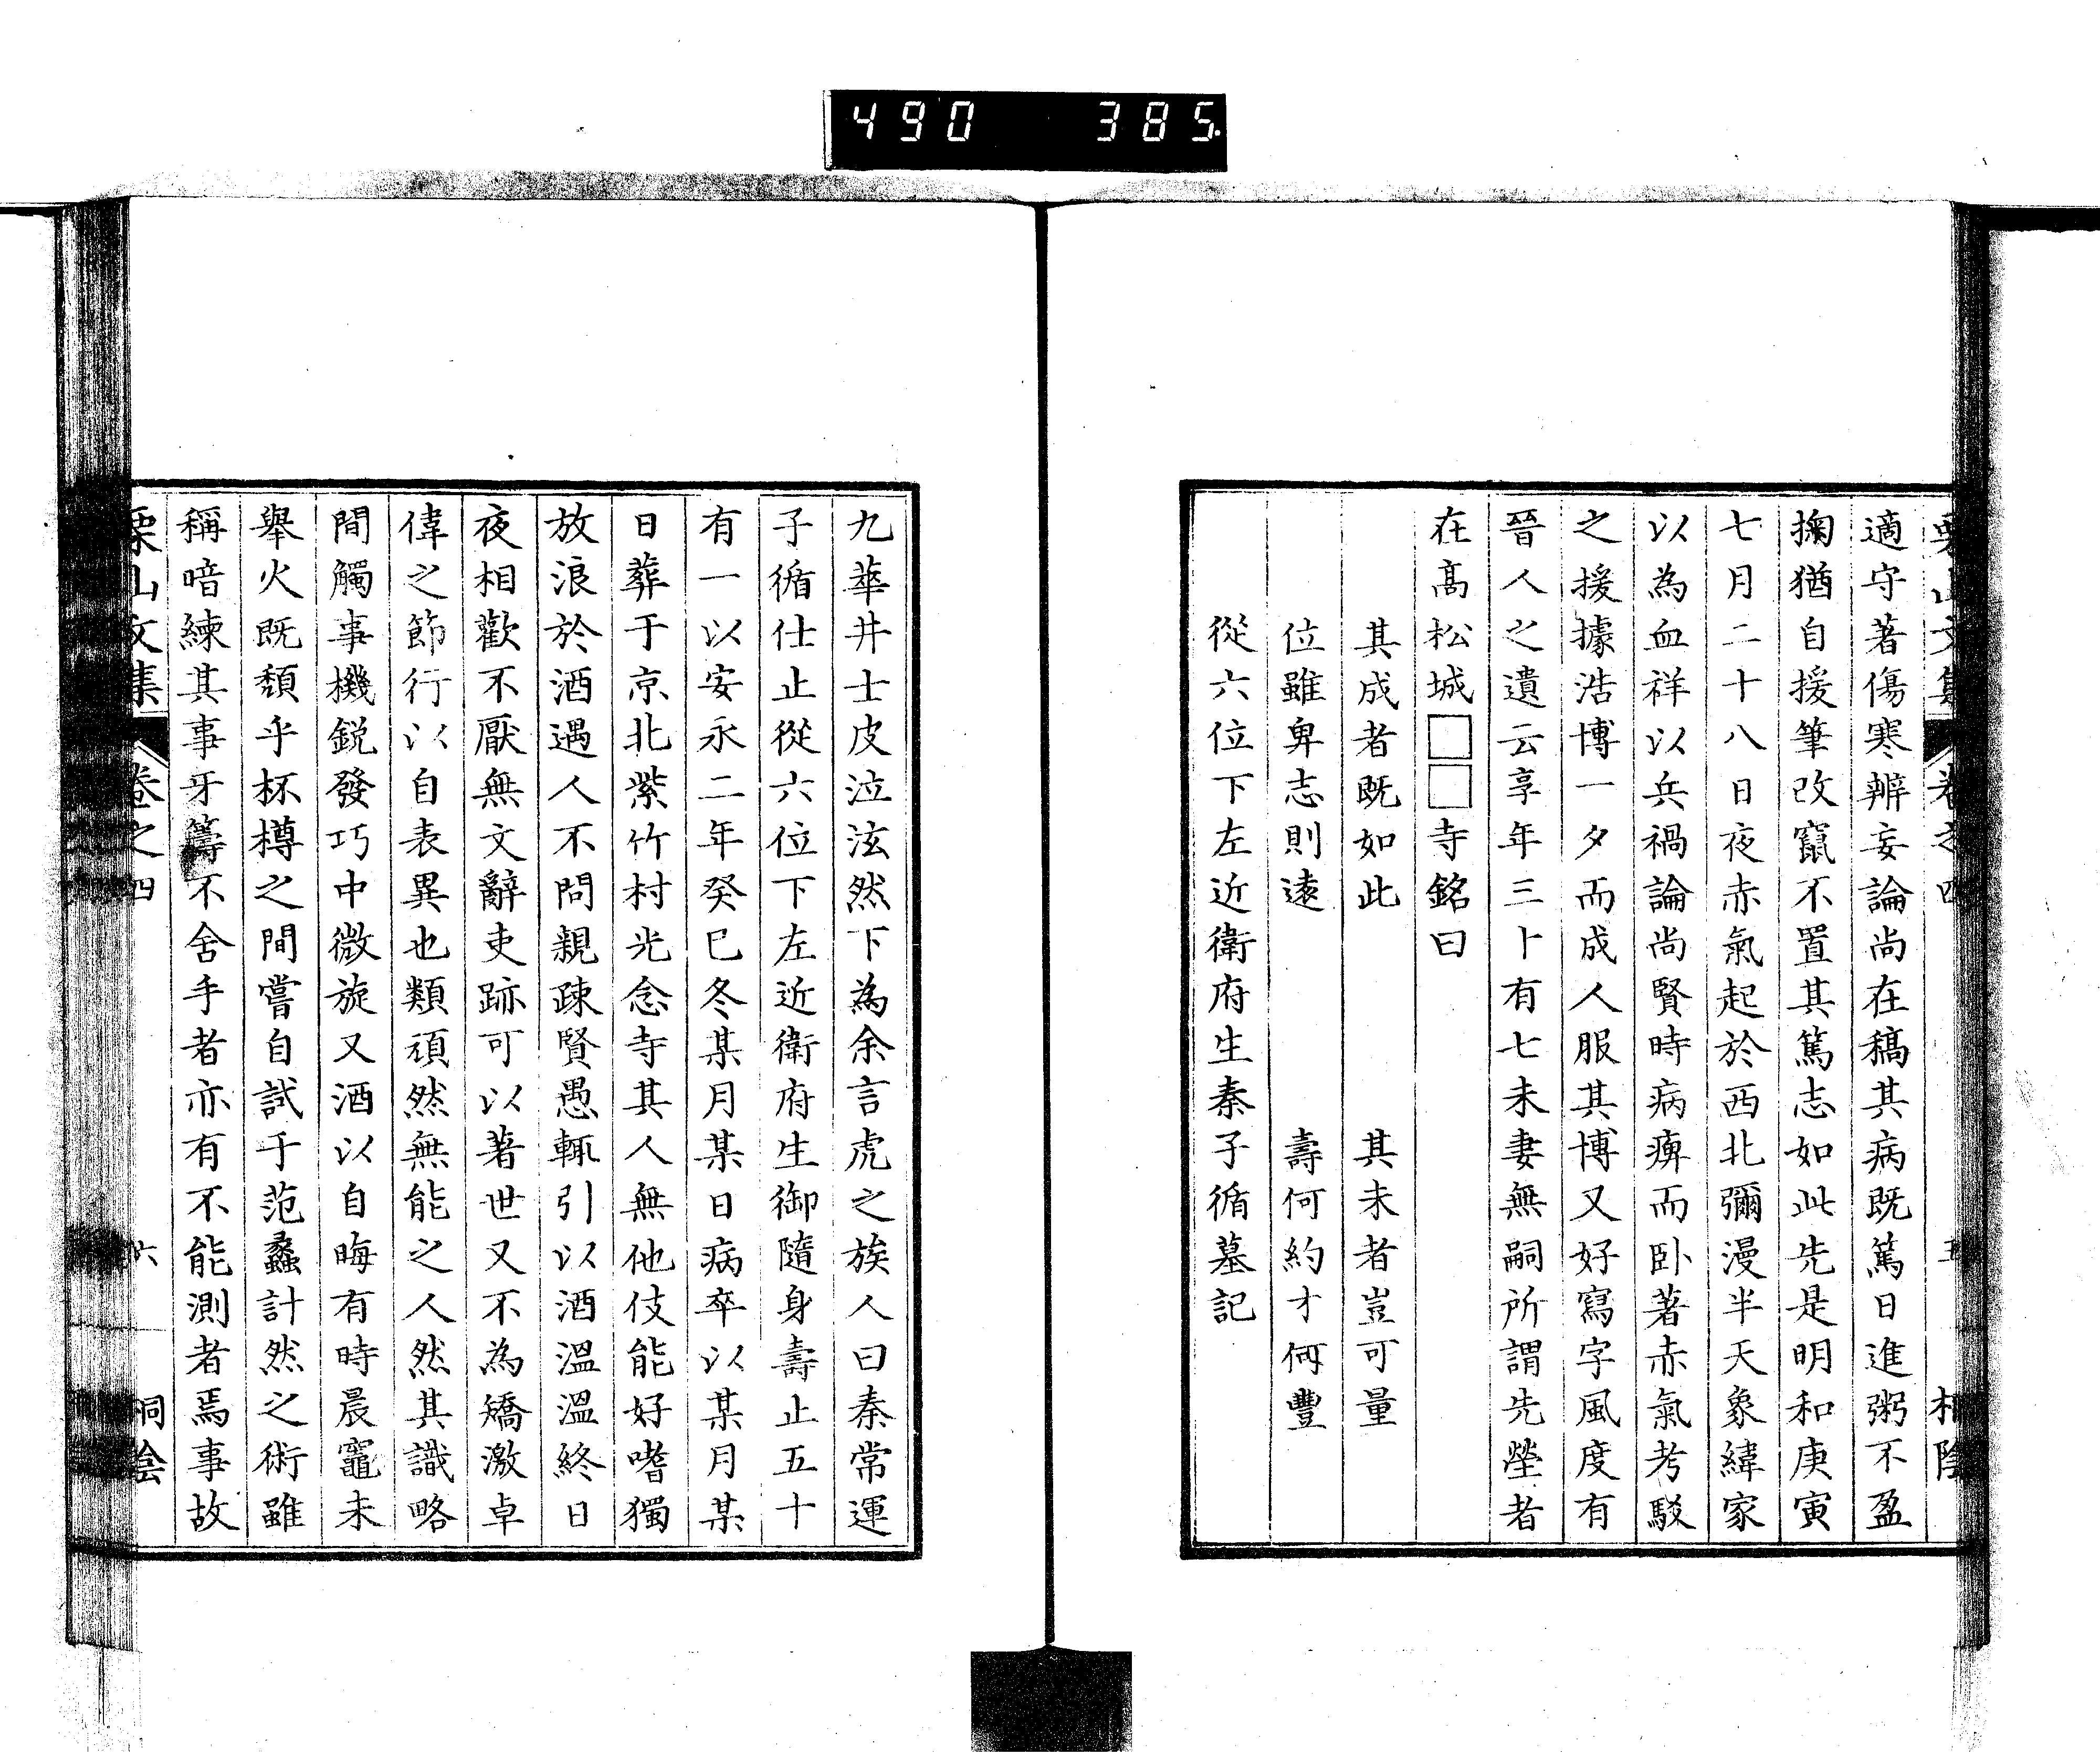 490 385
栗山文集 卷之四 五
適守著傷寒辨妄論尚在稿其病既篤日進粥不盈
掬猶自援筆改竄不置其篤志如此先是明和庚寅
七月二十八日夜赤氣起於西北彌漫半天象緯家
以為血祥以兵禍論尚賢時病痺而卧著赤氣考駁
之援據浩博一夕而成人服其博又好寫字風度有
晉人之遺云享年三十有七未妻無嗣所謂先塋者
在髙松城□□寺銘曰
其成者既如此 其未者豈可量
位雖卑志則遠 壽何約才何豐
從六位下左近衛府生秦子循墓記
九華井士皮泣泫然下為余言虎之族人曰秦常運
子循仕止從六位下左近衛府生御隨身壽止五十
有一以安永二年癸巳冬某月某日病卒以某月某
日葬于京北紫竹村光念寺其人無他伎能好嗜獨
放浪於酒遇人不問親疎賢愚輒引以酒溫溫終日
夜相歡不厭無文辭吏跡可以著世又不為矯激卓
偉之節行以自表異也類頑然無能之人然其識略
間觸事機鋭發巧中微旋又酒以自晦有時晨竈未
舉火既頽乎杯樽之間嘗自試于范蠡計然之術雖
稱暗練其事牙籌不舍手者亦有不能測者焉事故
栗山文集 卷之四 六 桐陰